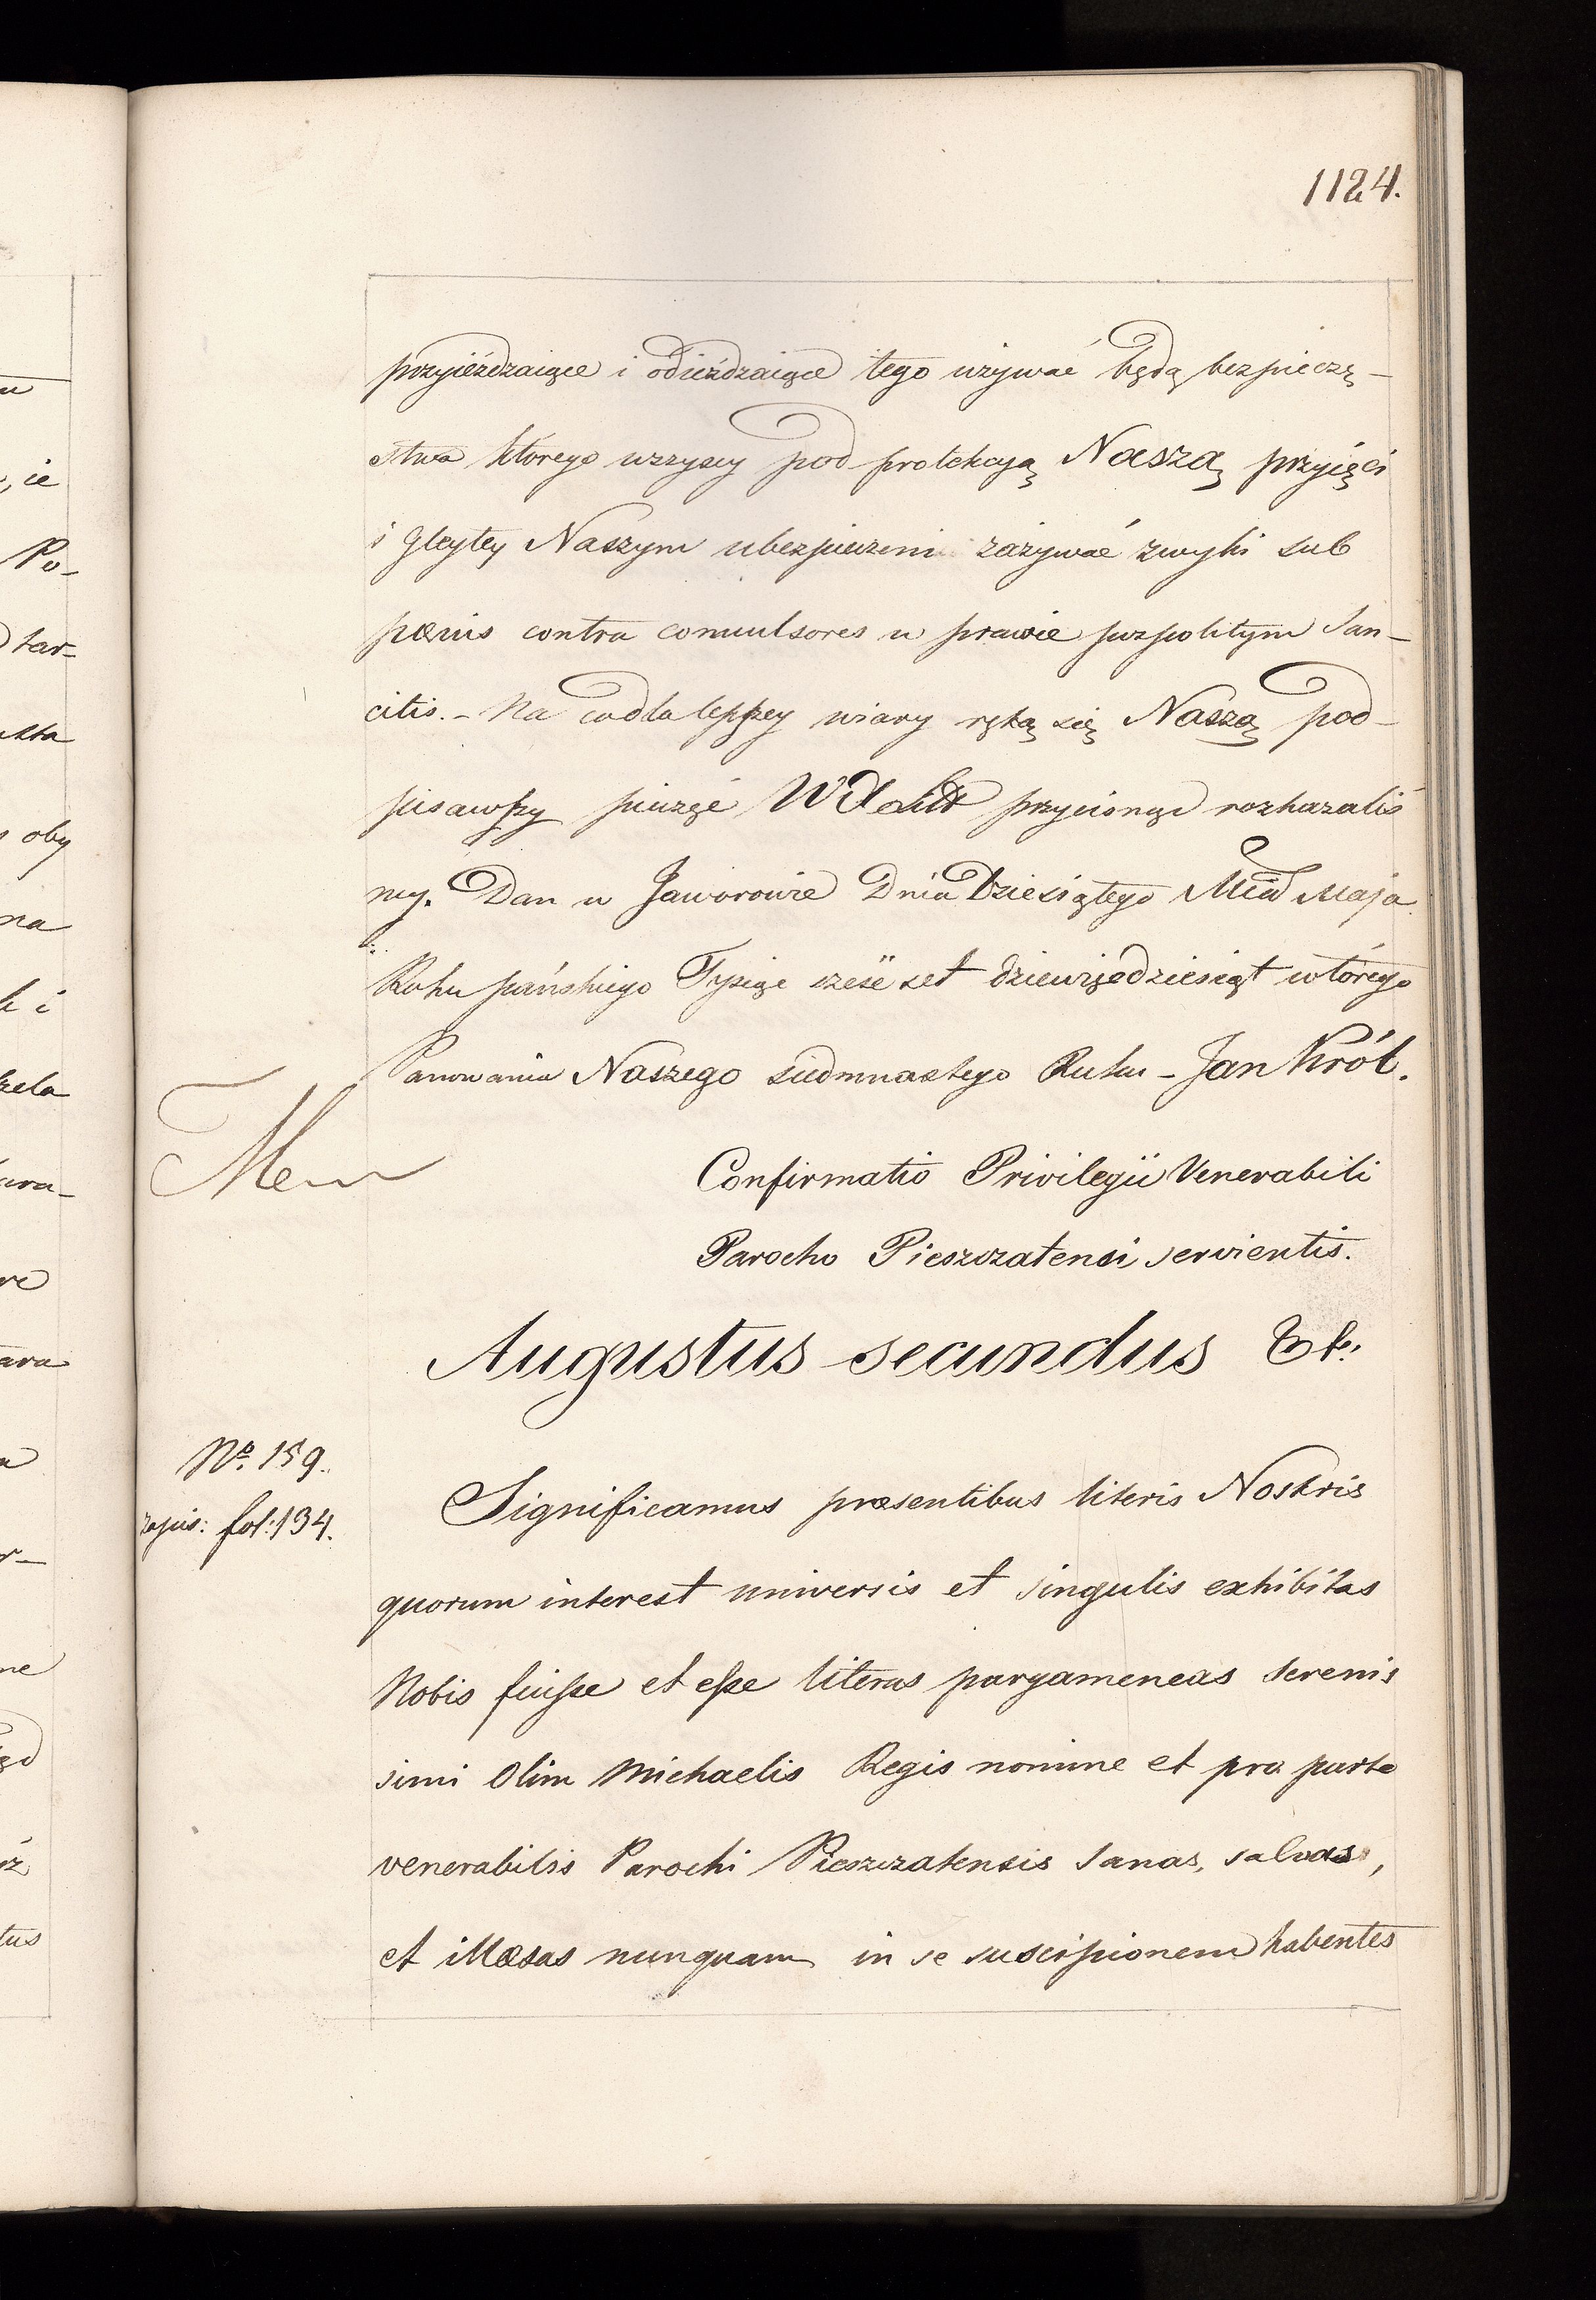 1124.
przyieżdzaiące i odieżdzaiące tego używać będą bezpieczę-
stwa którego wszyscy pod protekcyą Naszą przyięci
i gleytey Naszym ubezpieczeni zażywać zwykli sub
pœnis contra convulsores w prawie pospolitym San-
citis. - Na co dla lepszey wiary ręką się Naszą pod-
pisawszy pieczęć W X Litt przycisnąć rozkazaliś
my. Dan w Jaworowie Dnia Dziesiątego Mca Maja
Roku pańskiego Tysiąc sześć set dziewięćdziesiąt wtórego
Panowania Naszego siedmnastego Roku - Jan Król.
Confirmatio Privilegii Venerabili
Parocho Pieszczatensi servientis.
Augustus secundus Etc:
No. 159.
zapis: fol: 134.
Significamus præsentibus literis Nostris
quorum interest universis et singulis exhibitas
Nobis fuisse et esse literas pargameneas Serenis
simi Olim Michaelis Regis nomine et pro parte
venerabilis Parochi Pieszczatensis Sanas, salvas,
et illæsas nunquam in se suscipionem habentes